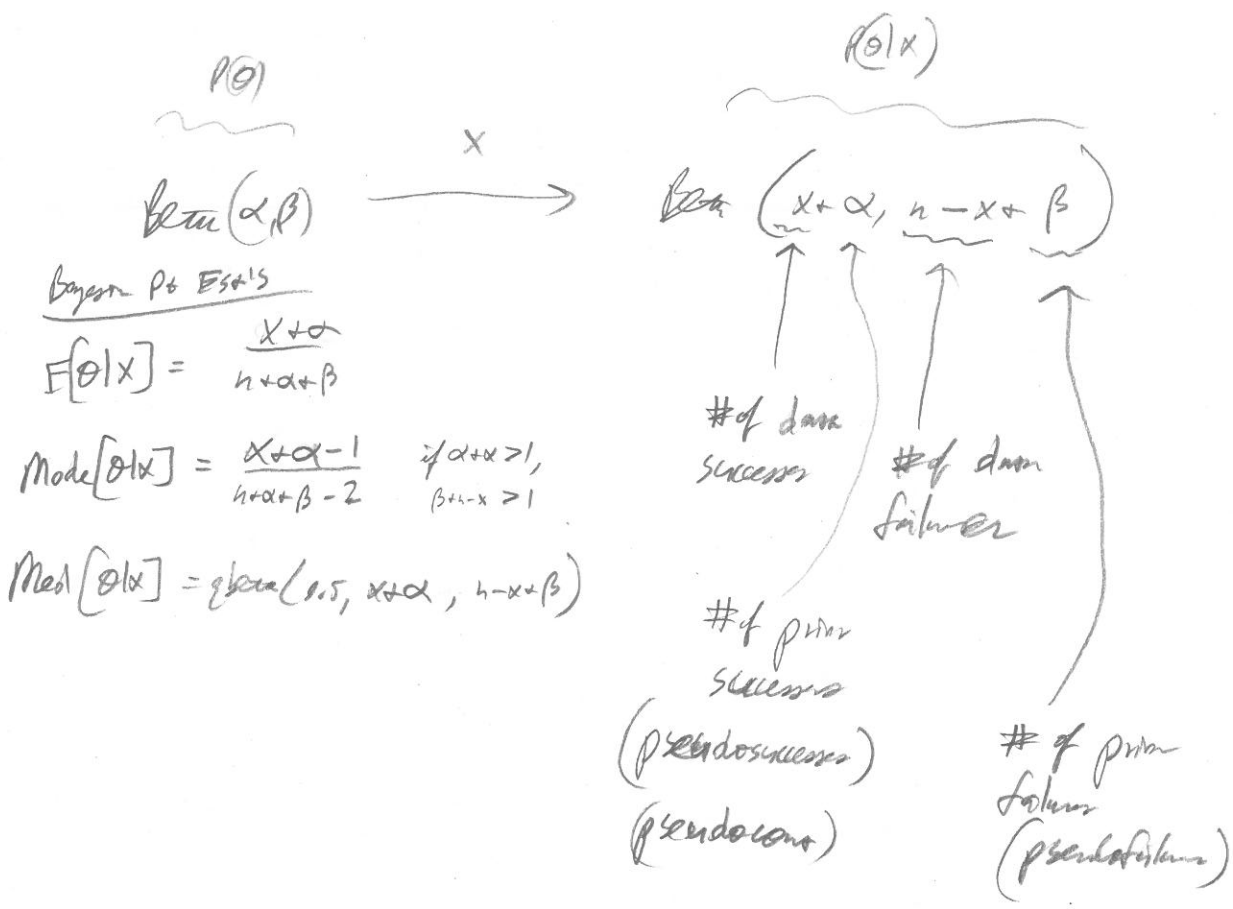 P(θ)
P(θ|X)
X
Beta(α,β)
Beta (x+α, n-x+β)
Bayesian Pt Est's
E[θ|X] = X+α / n+α+β
Mode[θ|X] = X+α-1 / n+α+β-2 if α+x>1,
β+n-x >1
Med[θ|X] = qbeta(0.5, x+α, n-x+β)
# of data
successes
# of data
failures
# of prior
successes
(pseudosuccesses)
(pseudocount)
# of prior
failures
(pseudofailures)